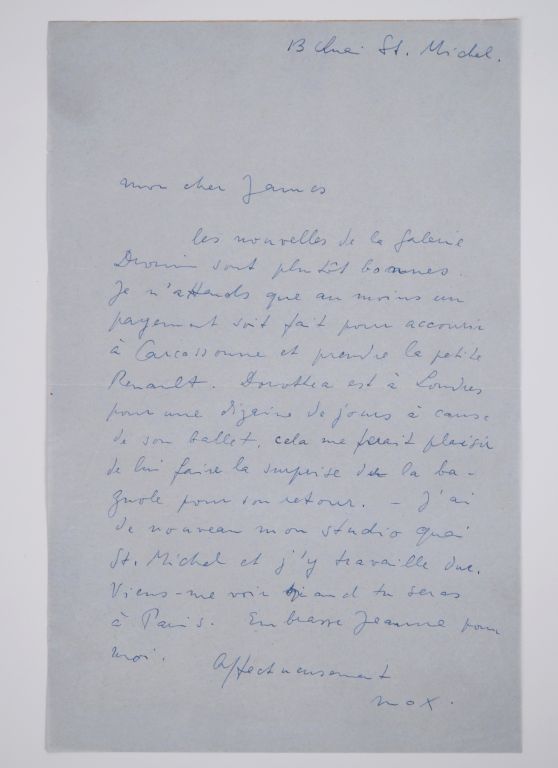 13 Quai St. Michel.
mon cher James
les nouvelles de la galerie
Drouin sont plutôt bonnes.
Je n'attends que au moins un
payement soit fait pour accourir
à Carcassonne et prendre la petite
Renault. Dorothea est à Londres
pour une dizaine de jours à cause
de son ballet, cela me ferait plaisir
de lui faire la surprise de la ba-
gnole pour son retour. – J'ai
de nouveau mon studio quai
St. Michel et j'y travaille dur.
Viens-me voir quand tu seras
à Paris. Embrasse Jeanne pour
moi. Affectueusement
max.